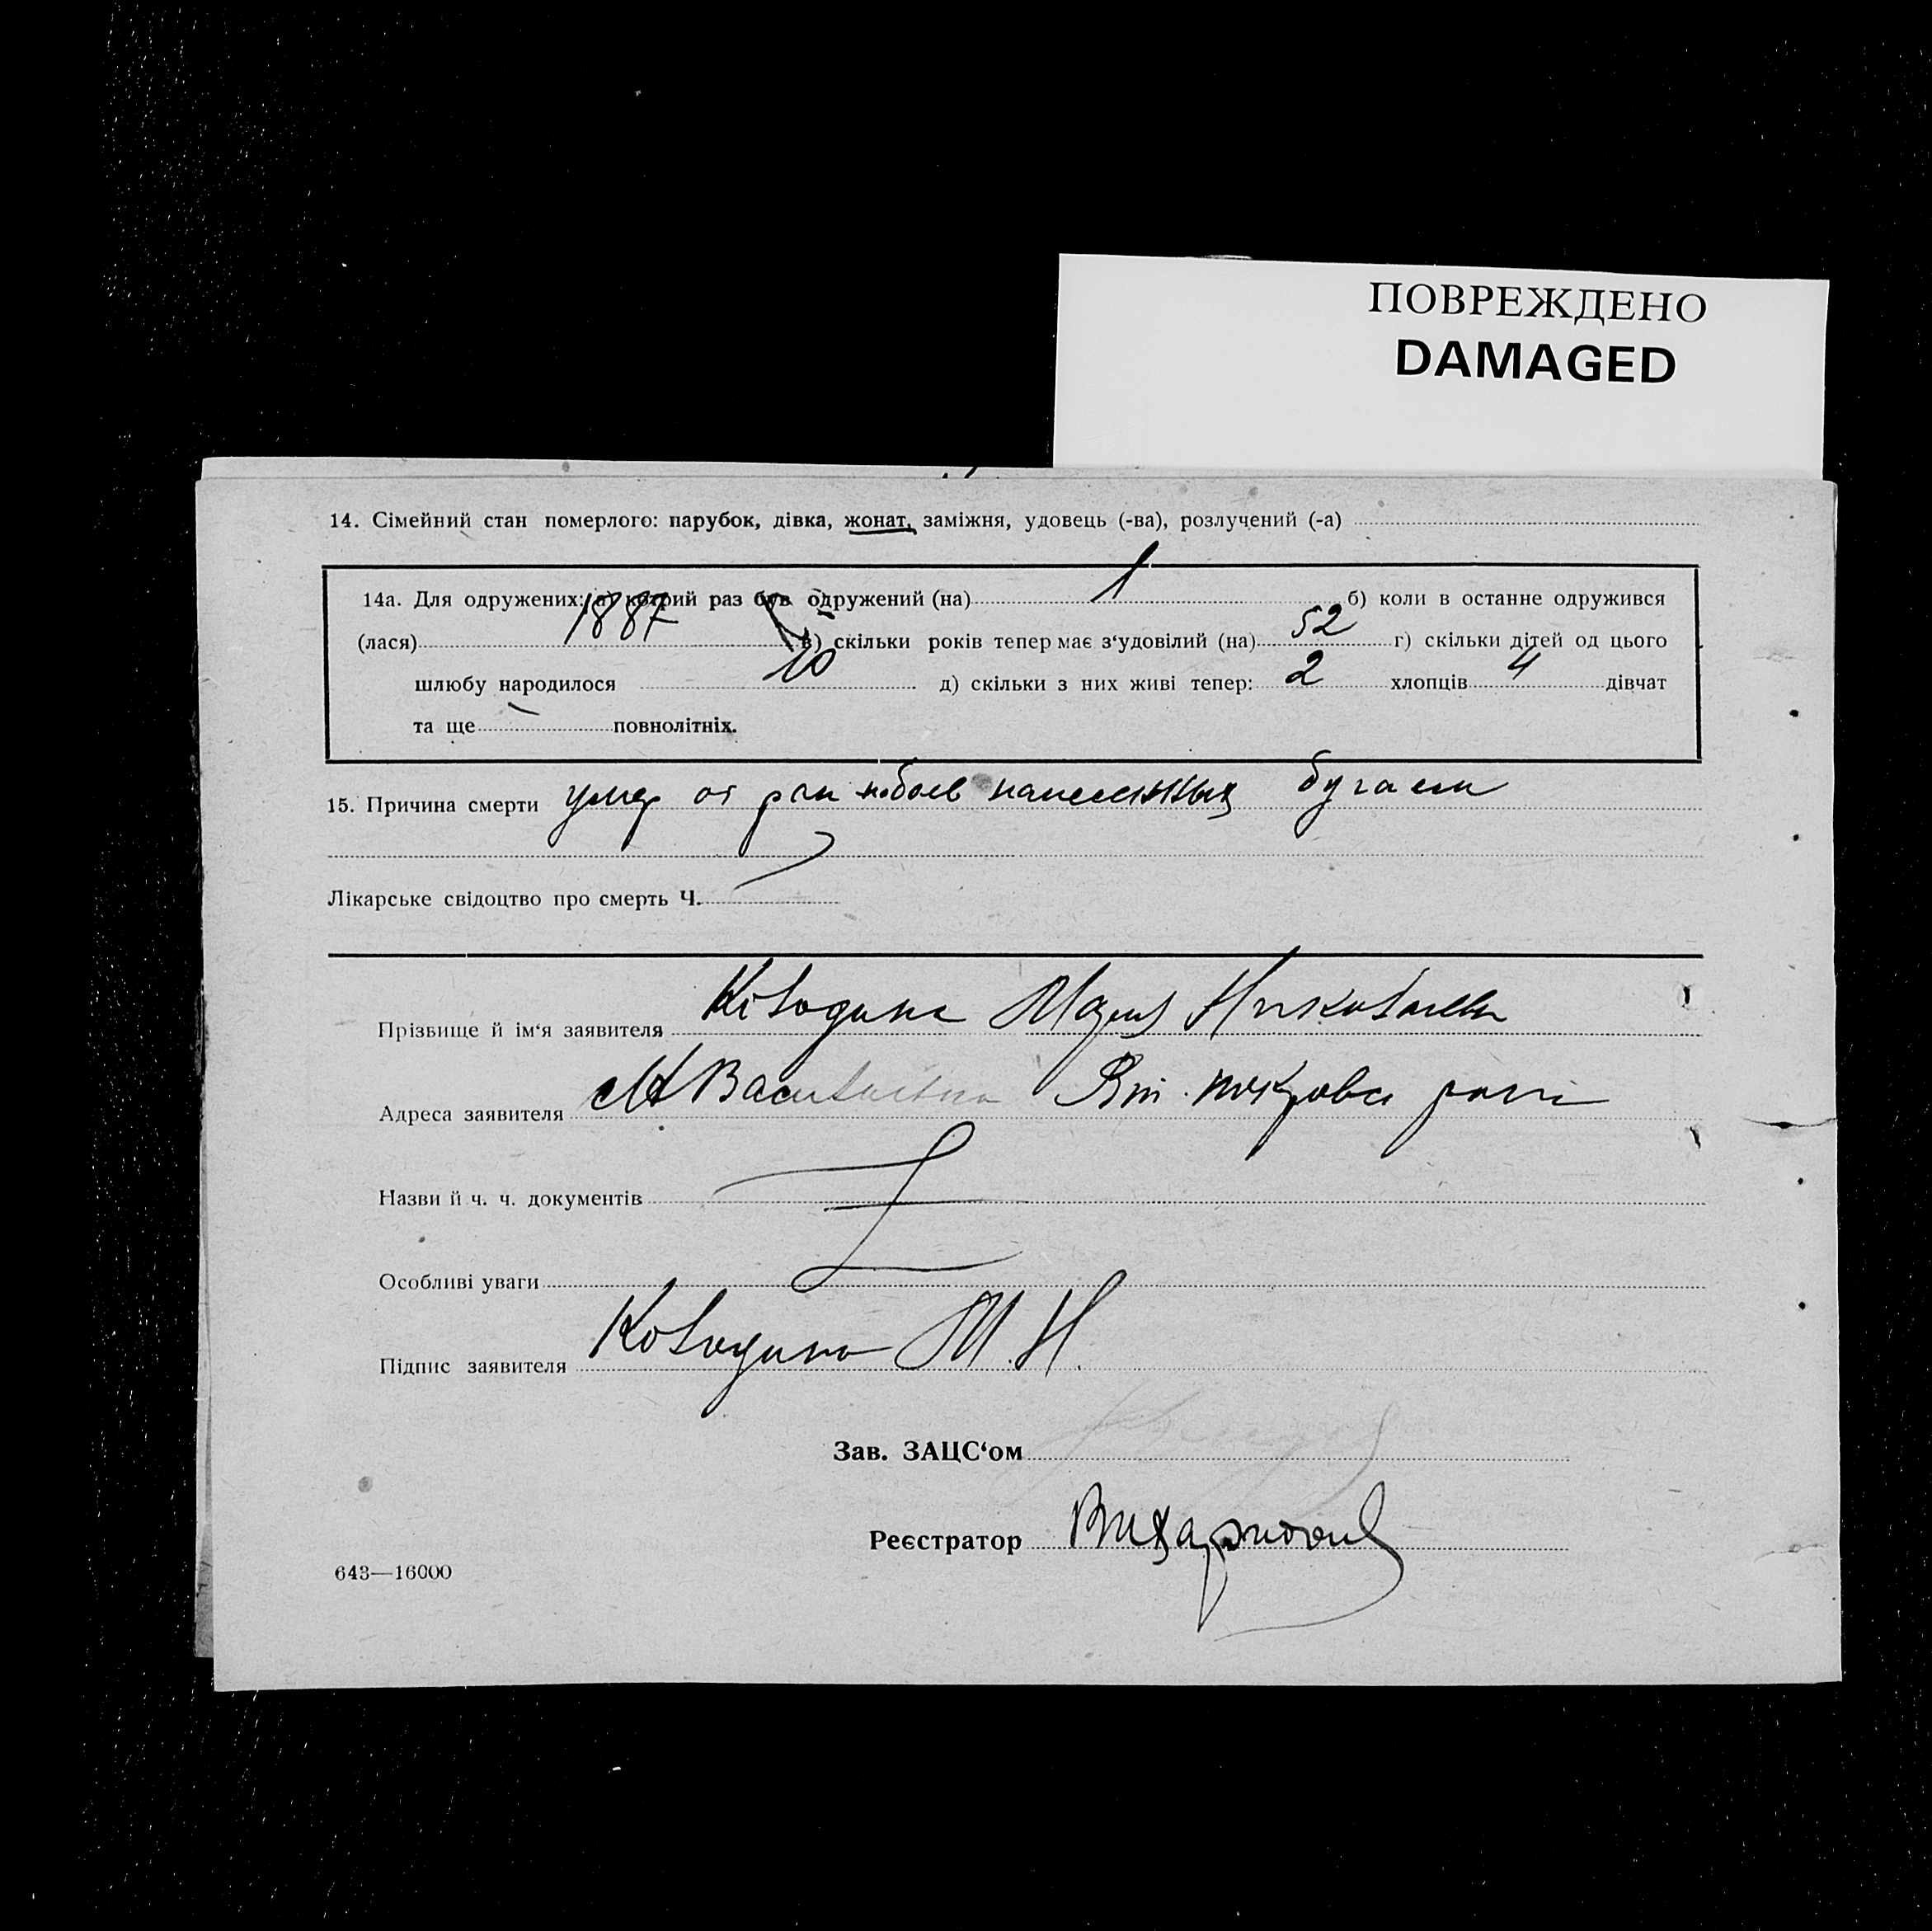 ПОВРЕЖДЕНО
DAMAGED
14. Сімейний стан померлого: парубок, дівка, жонат, заміжня, удовець (-ва), розлучений (-а)
14а. Для одружених: а) котрий раз був одружений (на) 1 б) коли в останне одружився
(лася) 1887 в) скільки років тепер має з‘удовілий (на) 52 г) скільки дітей од цього
шлюбу народилося 10 д) скільки з них живі тепер: 2 хлопців 4 дівчат
та ще – повнолітніх.
15. Причина смерти умер от ран побоев нанесенных бугаем
Лікарське свідоцтво про смерть Ч.
Прізвище й ім‘я заявителя Колодина Мария Николаевн
Адреса заявителя Васильевка покровск
Назви й ч. ч. документів
Особливі уваги
Підпис заявителя Колодина М.Н.
Зав. ЗАЦС‘ом
Реєстратор
643—16000